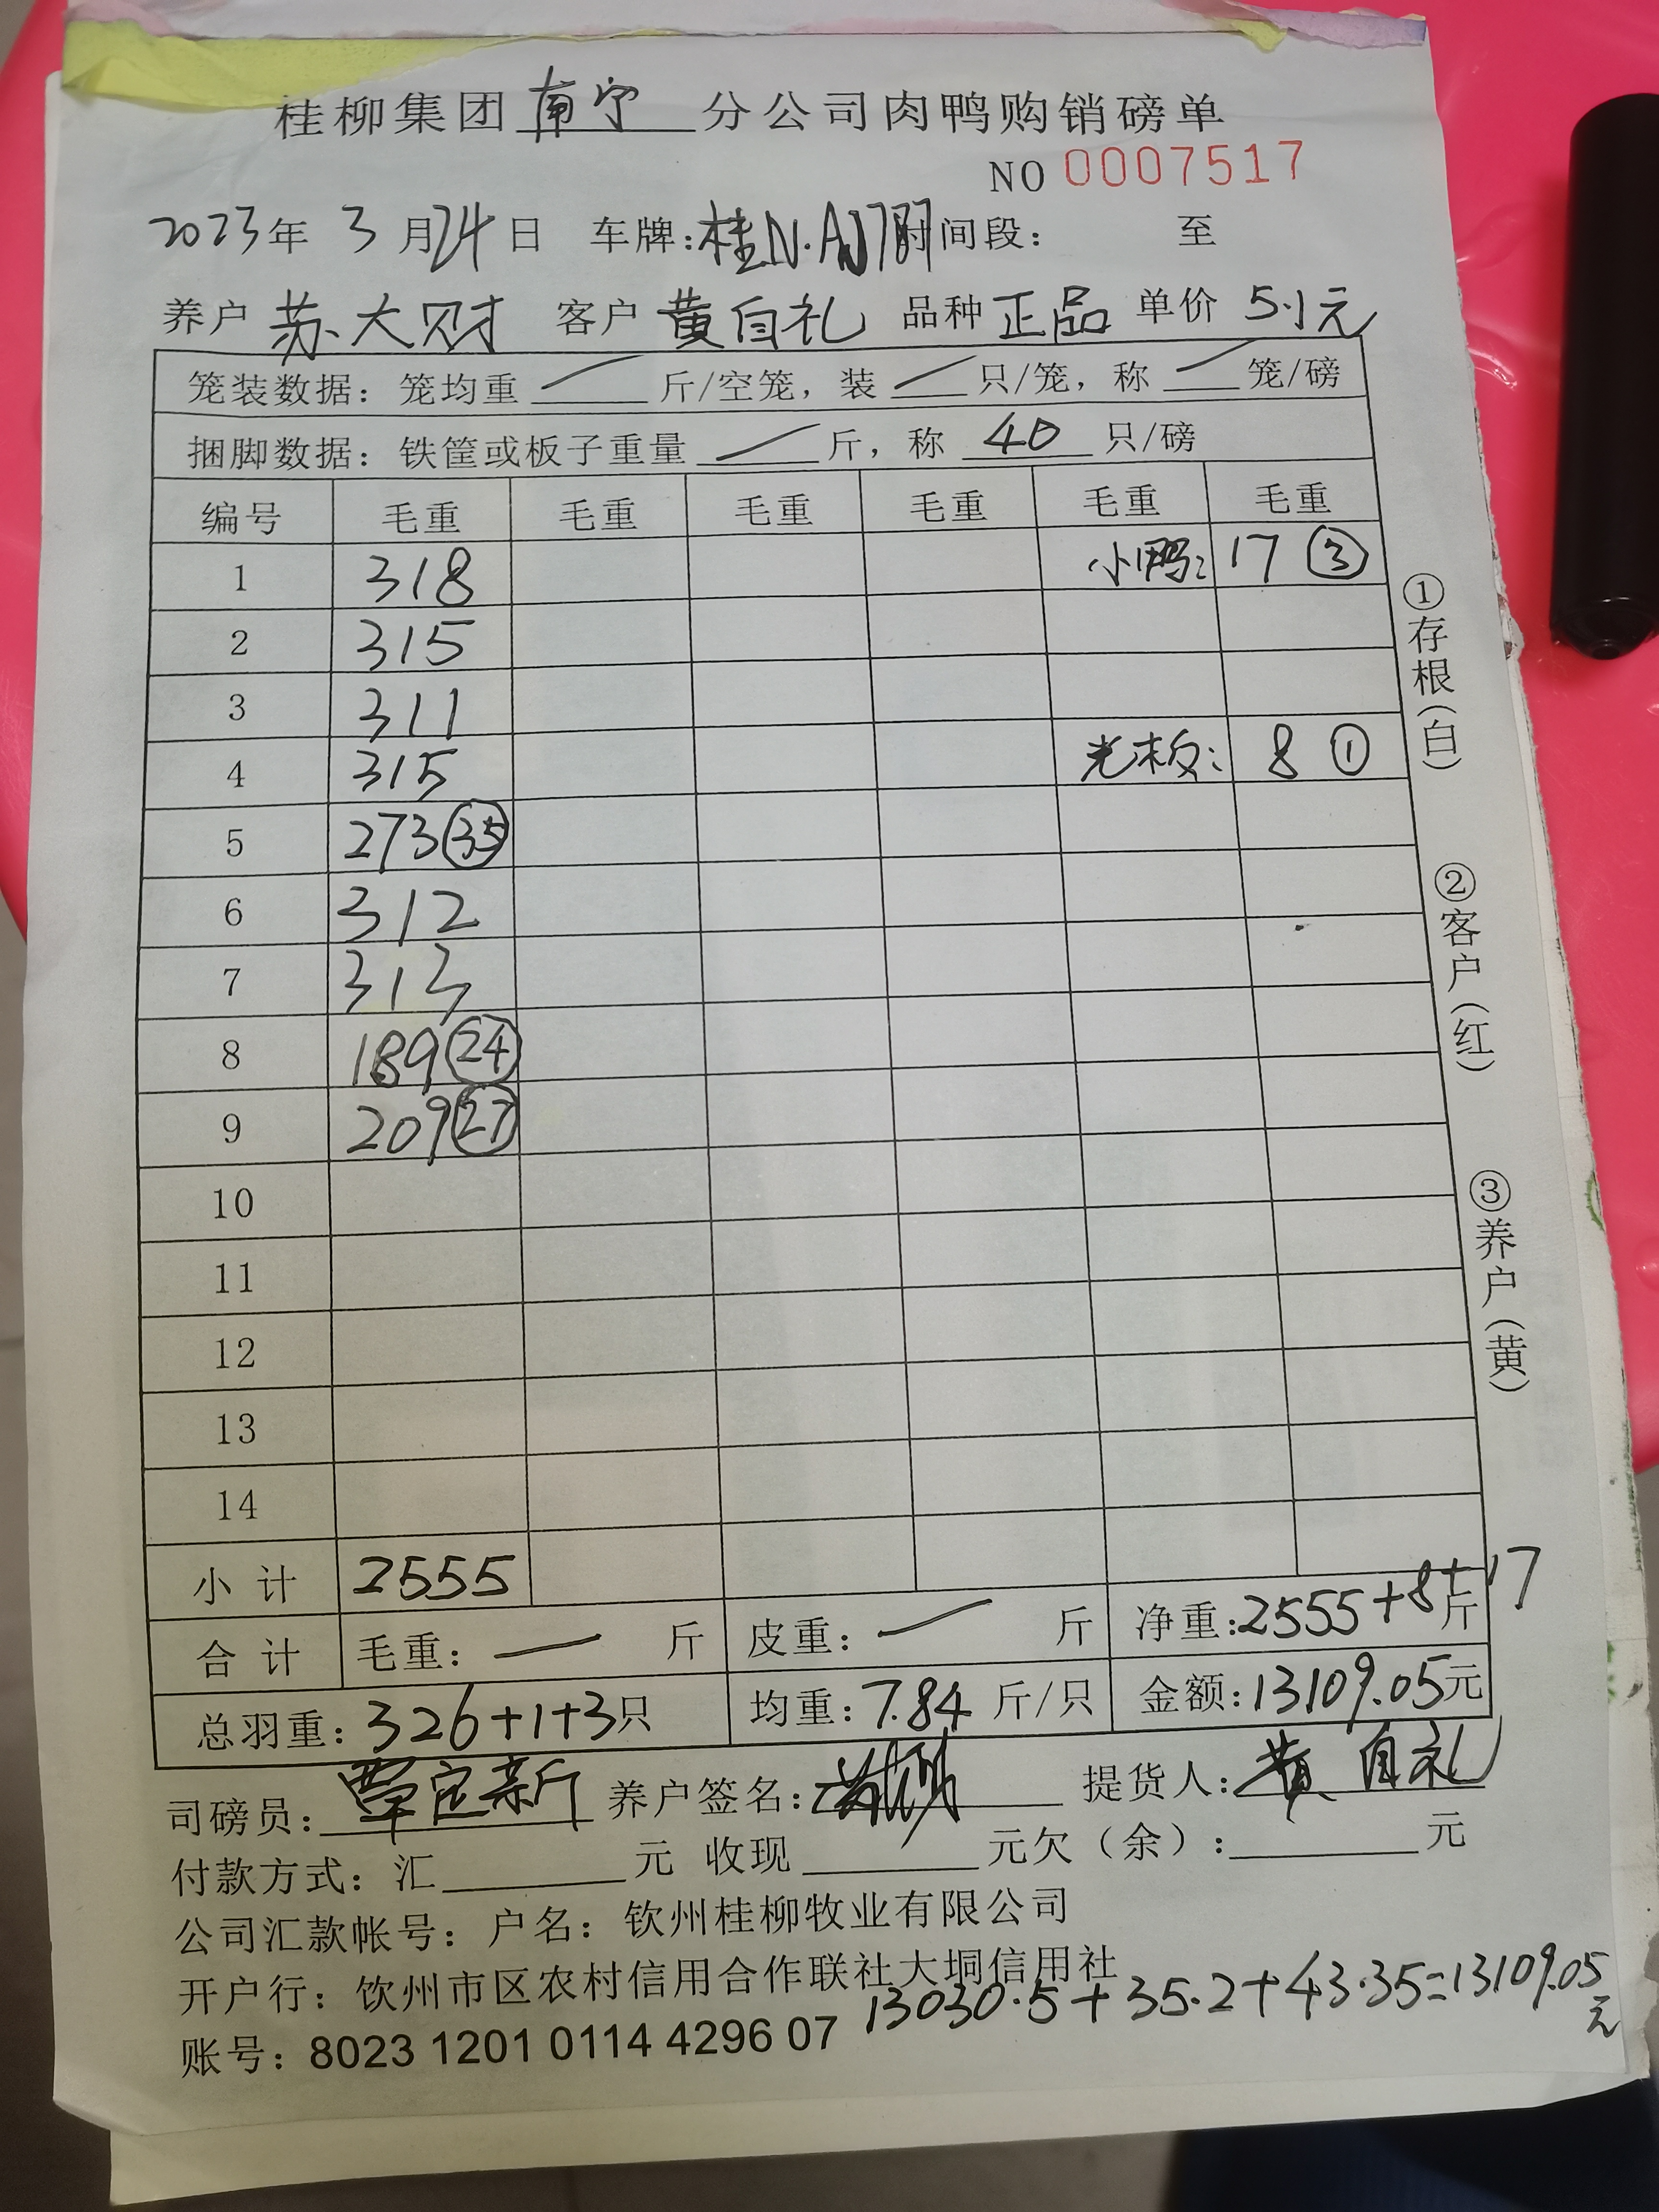 桂柳集团南宁分公司肉鸭购销磅单
NO 0007517
2023年 3月24日 车牌:桂N.A 时间段: 至
养户 苏大财 客户 黄自礼 品种 正品 单价 5.1元
笼装数据: 笼均重 / 斤/空笼, 装 / 只/笼, 称 / 笼/磅
捆脚数据: 铁筐或板子重量 / 斤, 称 40 只/磅
编号 毛重 毛重 毛重 毛重 毛重 毛重
1 318 小鸭: 17 ③
2 315
3 311
4 315 光板: 8 ①
5 273 ㉟
6 312
7 313
8 189 ㉔
9 209 ㉗
10
11
12
13
14
小计 2555
合计 毛重: — 斤 皮重: — 斤 净重:2555+8+17斤
总羽重: 326+1+3只 均重: 7.84 斤/只 金额:13109.05元
司磅员: 覃定新 养户签名: 提货人: 黄自礼
付款方式: 汇 元 收现 元欠(余): 元
公司汇款帐号: 户名: 钦州桂柳牧业有限公司
开户行: 钦州市区农村信用合作联社大垌信用社
13030.5+35.2+43.35=13109.05元
账号: 8023 1201 0114 4296 07
①存根(白)
②客户(红)
③养户(黄)